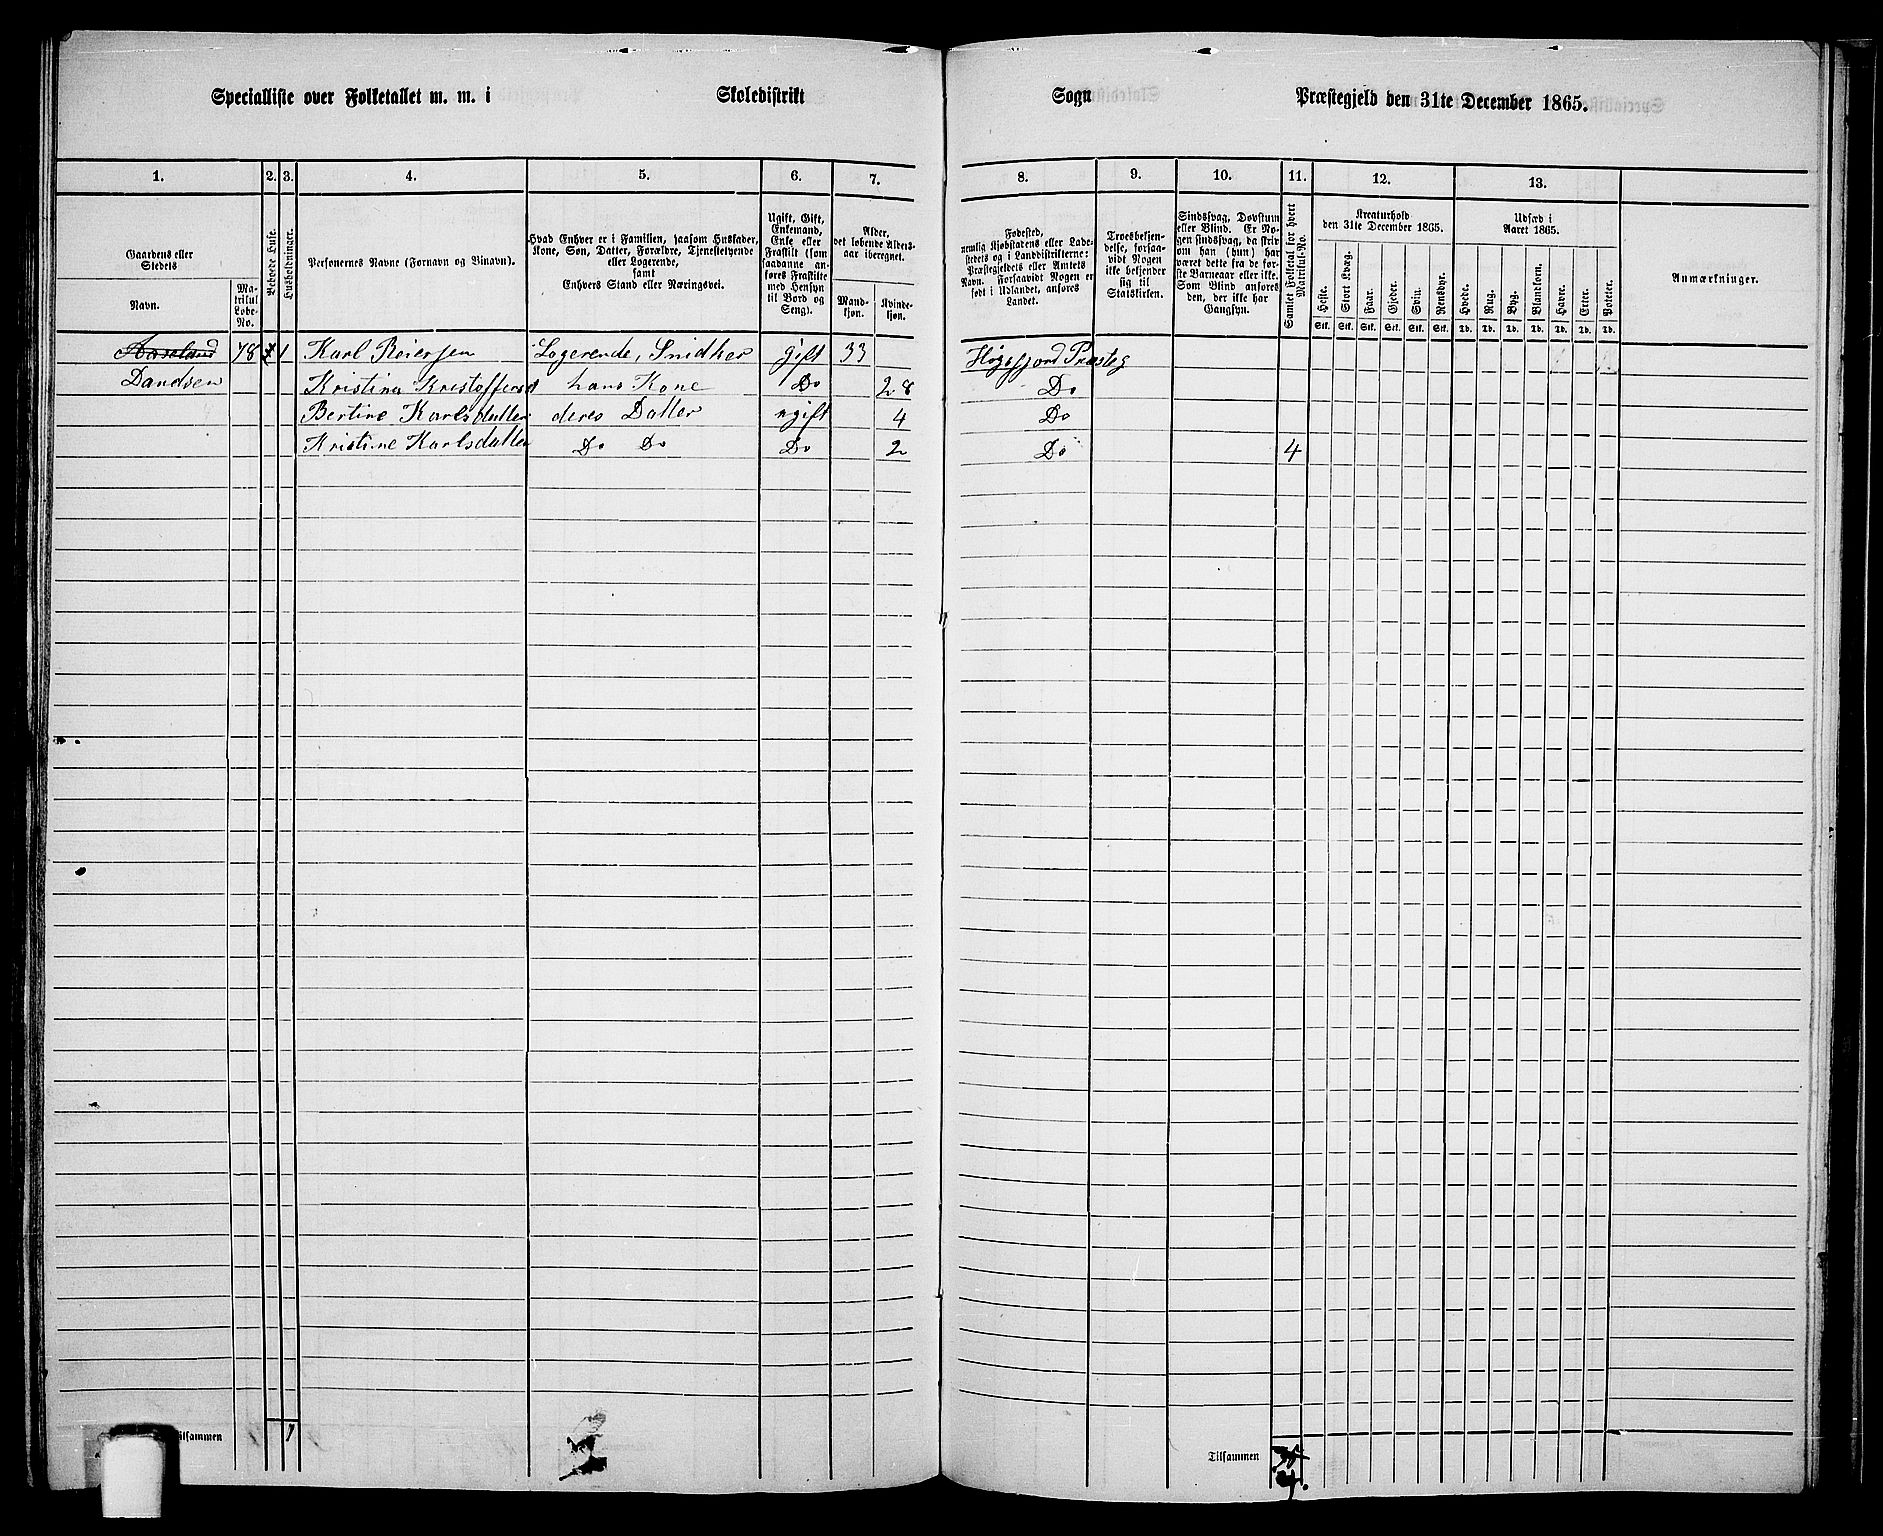 Speciallifte over Folketallet m. m. i Skoledistrikt Sogn Præstegjeld den 31te December 1865.
1. 2. 3. 4. 5. 6. 7. 8. 9. 10. 11. 12. 13.
Gaardens eller Stedets
Navn.
Matrikul Løbe-No.
Beboede Huse.
Husholdninger.
Personernes Navne (Fornavn og Binavn).
Hvad Enhver er i Familien, saasom Husfader,
Kone, Søn, Datter, Forældre, Tjenestetyende
eller Logerende,
samt
Enhvers Stand eller Næringsvei.
Ugift, Gift,
Enkemand,
Enke eller
Fraskilt (som
saadanne an-
føres Fraskilte
med Hensyn
til Bord og
Seng).
Alder,
det løbende Alders-
aar iberegnet.
Mand-
kjøn.
Kvinde-
kjøn.
Fødested,
nemlig Kjøbstadens eller Lade-
stedets og i Landdistrikterne:
Præstegjeldets eller Amtets
Navn. Forsaavidt Nogen er
født i Udlandet, anføres
Landet.
Troesbekjen-
delse, forsaa-
vidt Nogen
ikke bekjender
sig til
Statskirken.
Sindssvag, Døvstum
eller Blind. Er No-
gen sindssvag, da skriv
om han (hun) har
været dette fra de før-
ste Barneaar eller ikke.
Som Blind anføres
den, der ikke har
Gangsyn.
Samlet Folketal for hvert
Matrikul-No.
Kreaturhold
den 31te December 1865.
Heste. Stort Kvæg. Faar. Gjeder. Svin. Rensdyr.
Stk. Stk. Stk. Stk. Stk. Stk.
Udsæd i
Aaret 1865.
Hvede. Rug. Byg. Blandkorn. Havre. Erter. Poteter.
Td. Td. Td. Td. Td. Td. Td.
Anmærkninger.
Aaseland 78 1 Karl Reiersen Logerende, Snidker gift 33 Høgsfjord Præsteg
Dandsen Kristina Kristoffersd hans Kone Do 28 Do
Bertine Karlsdatter deres Datter ugift 4 Do
Kristine Karlsdatter Do Do Do 2 Do 4
Tilsammen 1 Tilsammen
4.